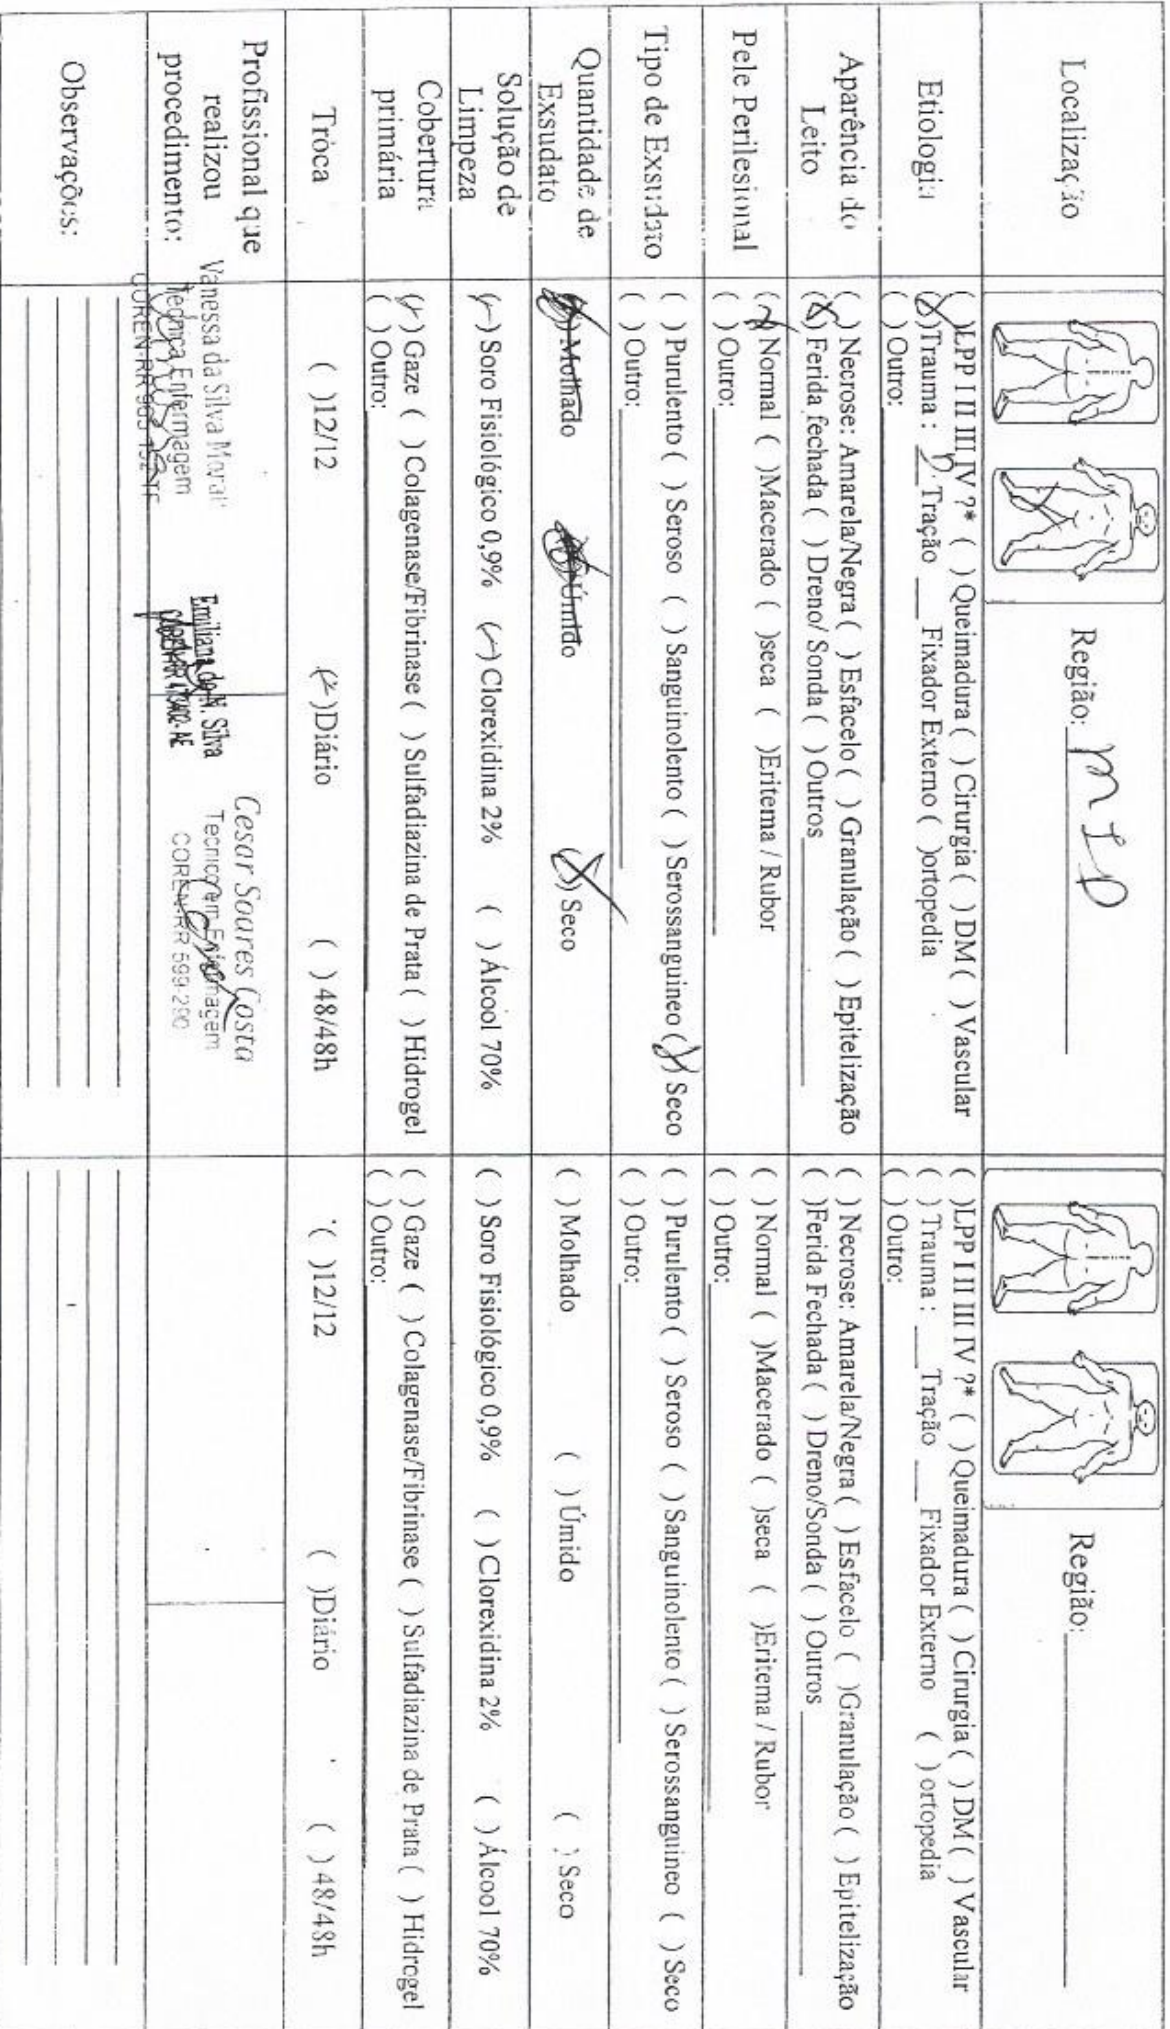 Localização
Região: MID
Região:
Etiologia
( )LPP I II III IV ?* ( ) Queimadura ( ) Cirurgia ( ) DM ( ) Vascular
(X)Trauma : ___Tração ___ Fixador Externo ( )ortopedia
( ) Outro:
( )LPP I II III IV ?* ( ) Queimadura ( ) Cirurgia ( ) DM ( ) Vascular
( ) Trauma : ___Tração ___ Fixador Externo ( ) ortopedia
( ) Outro:
Aparência do
Leito
( ) Necrose: Amarela/Negra ( ) Esfacelo ( ) Granulação ( ) Epitelização
(X) Ferida fechada ( ) Dreno/ Sonda ( ) Outros
( ) Necrose: Amarela/Negra ( ) Esfacelo ( )Granulação ( ) Epitelização
( )Ferida Fechada ( ) Dreno/Sonda ( ) Outros
Pele Perilesional
(X) Normal ( )Macerado ( )seca ( )Eritema / Rubor
( ) Outro:
( ) Normal ( )Macerado ( )seca ( )Eritema / Rubor
( ) Outro:
Tipo de Exsudato
( ) Purulento ( ) Seroso ( ) Sanguinolento ( ) Serossanguineo (X) Seco
( ) Outro:
( ) Purulento ( ) Seroso ( )Sanguinolento ( ) Serossanguineo ( ) Seco
( ) Outro:
Quantidade de
Exsudato
( ) Molhado ( ) Úmido (X) Seco
( ) Molhado ( ) Úmido ( ) Seco
Solução de
Limpeza
(X) Soro Fisiológico 0,9% (X) Clorexidina 2% ( ) Álcool 70%
( ) Soro Fisiológico 0,9% ( ) Clorexidina 2% ( ) Álcool 70%
Cobertura
primária
(X) Gaze ( ) Colagenase/Fibrinase ( ) Sulfadiazina de Prata ( ) Hidrogel
( ) Outro:
( ) Gaze ( ) Colagenase/Fibrinase ( ) Sulfadiazina de Prata ( ) Hidrogel
( ) Outro:
Troca
( )12/12 (X)Diário ( ) 48/48h
( )12/12 ( )Diário ( ) 48/48h
Profissional que
realizou
procedimento:
Vanessa da Silva
Técnica Enfermagem
COREN-RR
Emiliana do N. Silva
Cesar Soares Costa
Tecnico em Enfermagem
COREN-RR 599-290
Observações: